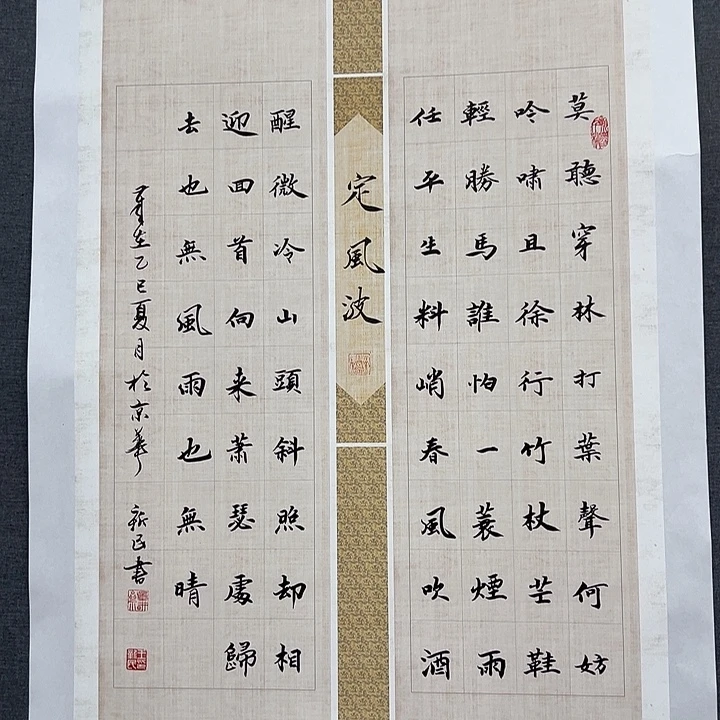 莫聽穿林打葉聲何妨
吟嘯且徐行竹杖芒鞋
輕勝馬誰怕一蓑煙雨
任平生料峭春風吹酒
定風波
醒微冷山頭斜照却相
迎回首向来蕭瑟處歸
去也無風雨也無晴
歲在乙巳夏月於京華 新民書